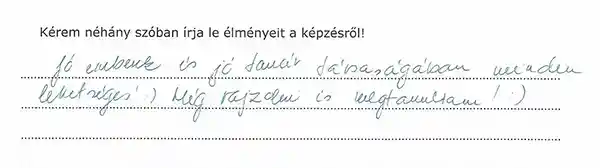 Kérem néhány szóban írja le élményeit a képzésről!
Jó emberek és jó tanár társaságában minden
lehetséges :) Még rajzolni is megtanultam! :)